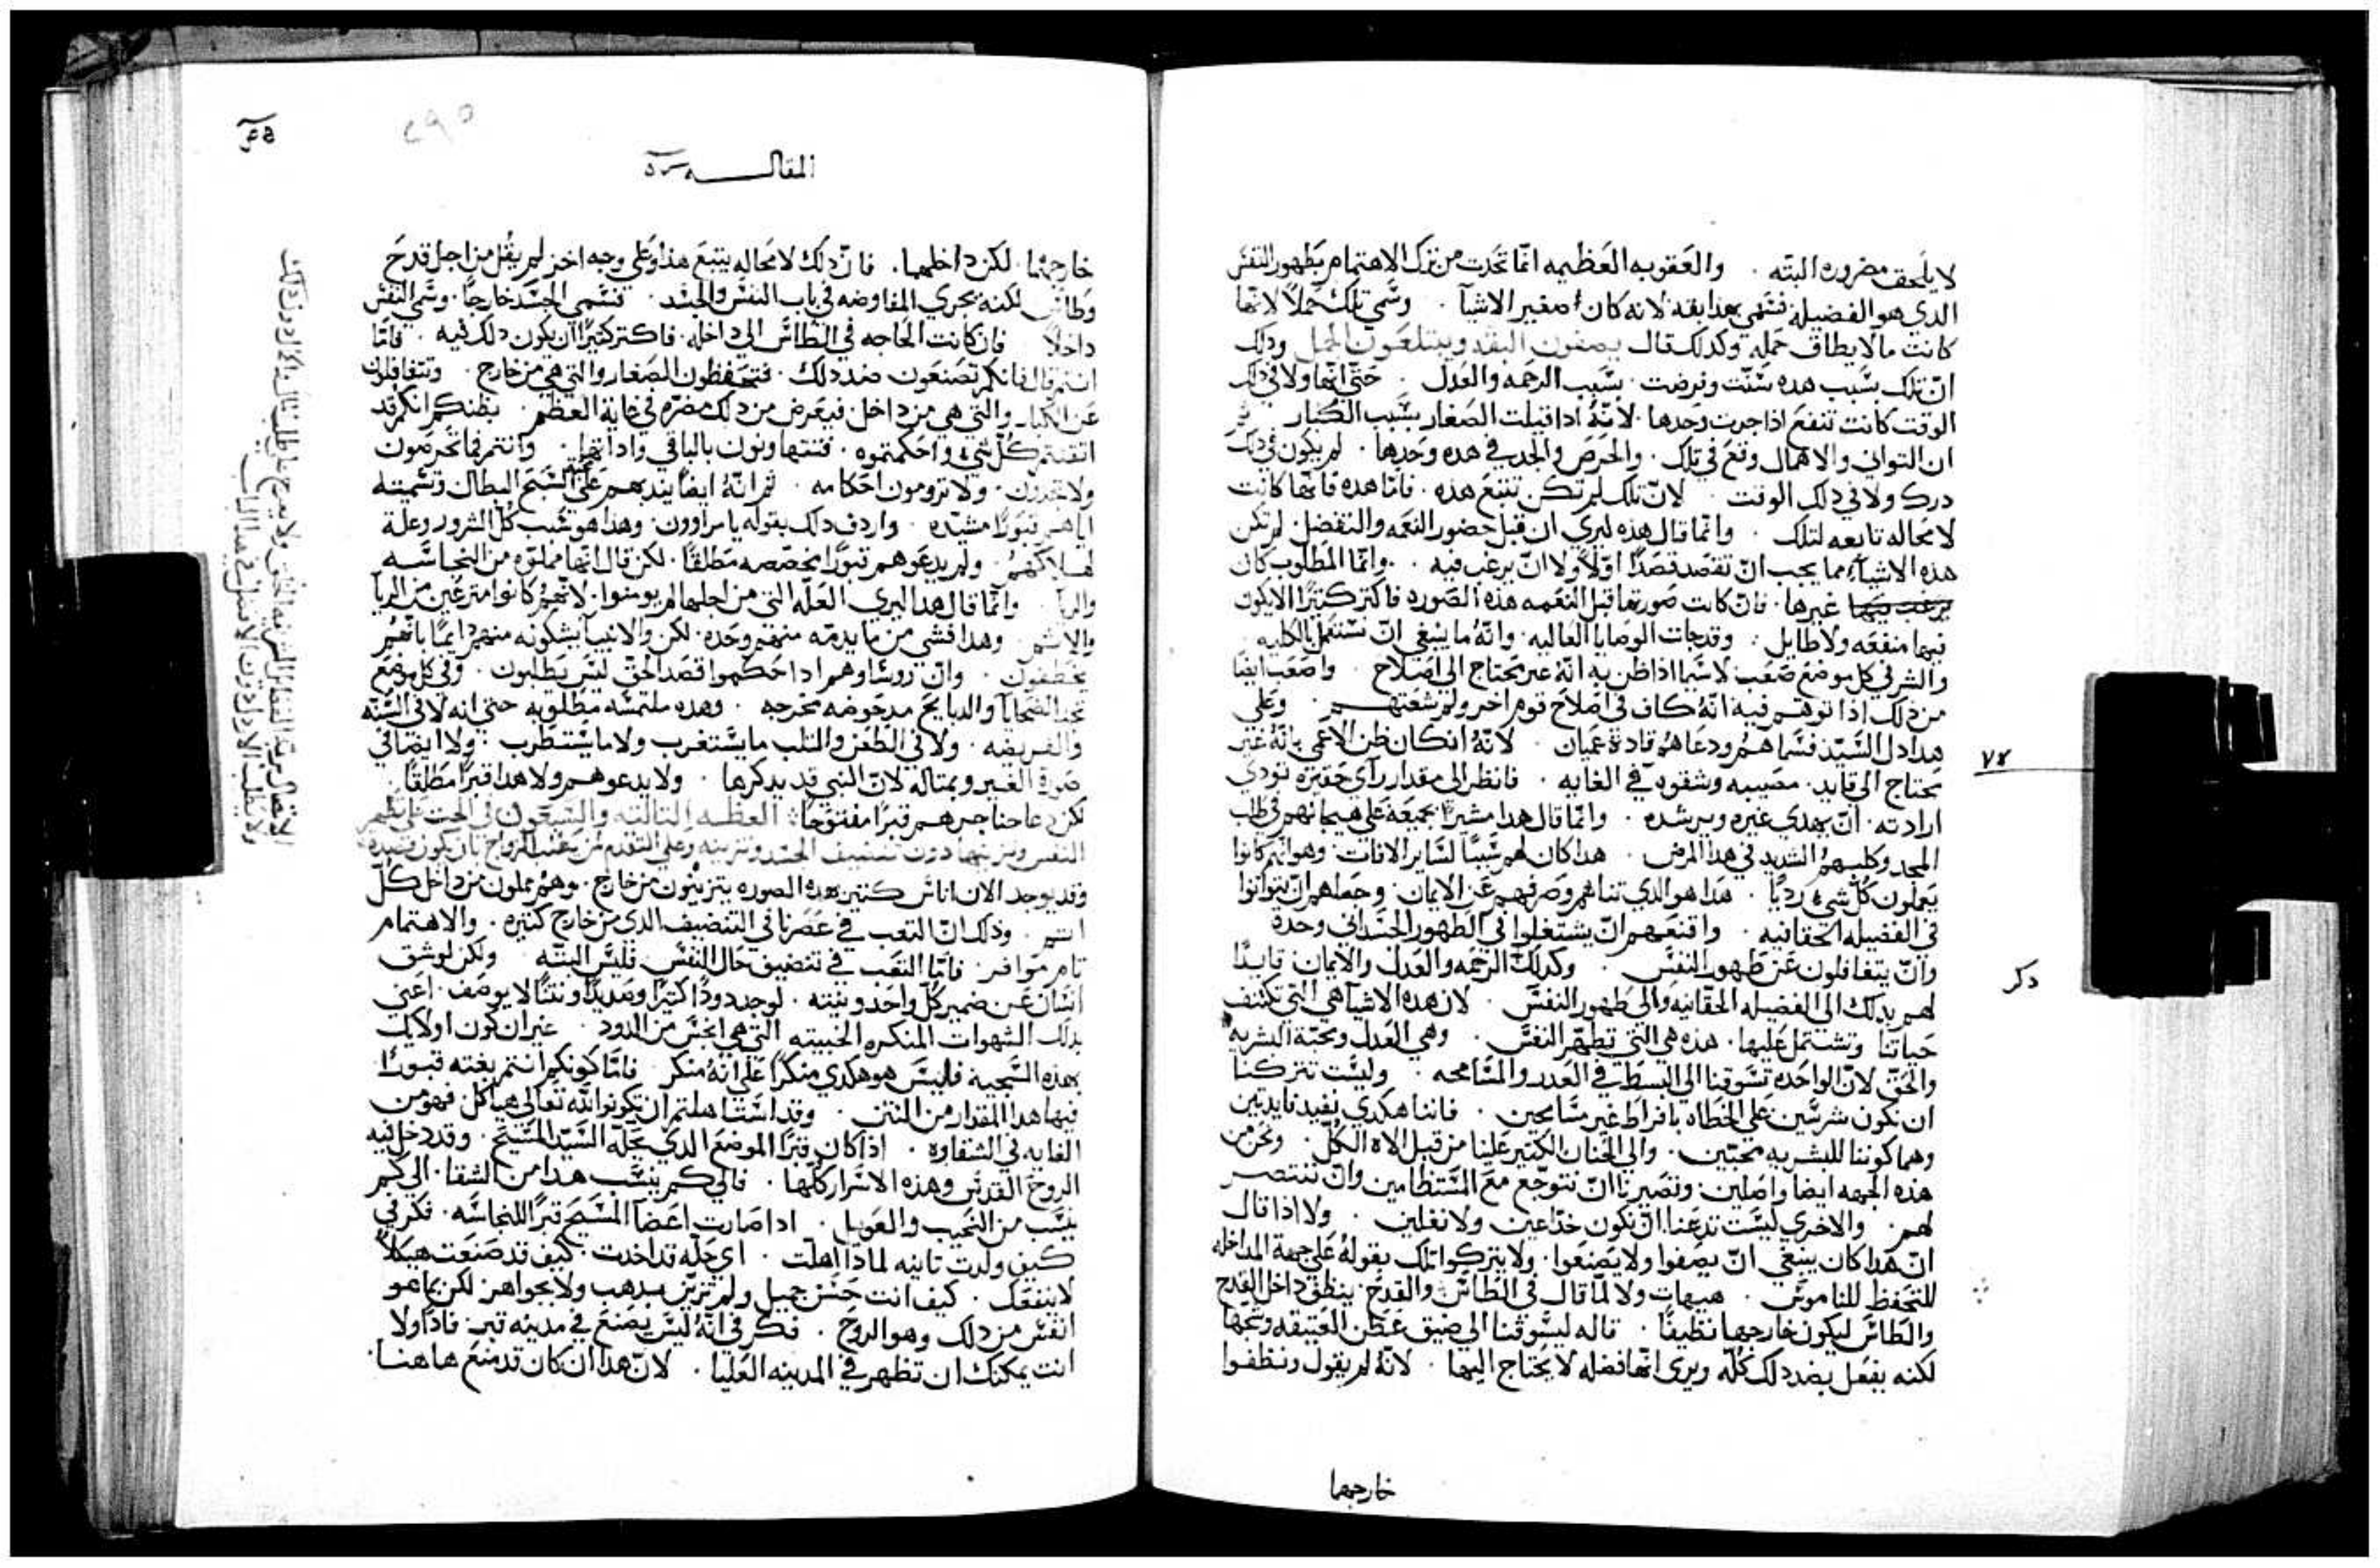 لا يلحق مضروره البته . والعقوبه العظيمه انما تحدث من ترك الاهتمام بطهور النفس
الدي هو الفضيله فسمي هذا بقه لانه كان اصغير الاشيآ . وسمي تلك جملاً لانها
كانت مالا يطاق حمله وكدلك قال يصفون البقه ويبتلعون الجمل ودلك
ان تلك بسبب هده سُنّت وفرضت . بسبب الرحمه والعدل . حتى انها ولا في دلك
الوقت كانت تنفع اذا جرت وحدها . لانهُ ادا قيلت الصغار بسبب الكبار ثم
ان التواني والاهمال وقع في تلك . والحرص والجد في هده وحدها . لم يكون في دلك
درك ولا في دلك الوقت لان تلك لم تكن تتبع هذه . فاما هده فانها كانت
لا محاله تابعه لتلك . وانما قال هذه ليري ان قبل حضور النعمه والتفضل . لم تكن
هذه الاشيآء مما يجب ان تقصد قصداً اوّلاً ولا ان يرغب فيه . وانما المطلوب كان
غيرها . فان كانت صورتها قبل النعمه هذه الصوره فاكتر كتيراً الا يكون
فيها منفعه ولا طايل . وقد جات الوصايا العاليه . وانهُ ما ينبغي ان تستعمل بالكليه
والشر في كل موضع صعب لا سيما اذا ظن به انهُ غير محتاج الى اصلاح . واصعب ايضا
من دلك اذا توهم فيه انهُ كاف في اصلاح قوم اخر ولم شعتهم . وعلي
هدا دل السيد فسماهم ودعاهم قادة عميان . لانهُ ان كان ظن الاعمى بانهُ غير
محتاج الى قايد . مصيبه وشقوه في الغايه . فانظر الى مقدار راي حفيره تودي
ارادته . ان يهدي غيره ويرشده . وانما قال هدا مشيراً بجميعه علي هيمانهم في طلب
المجد وكلبهم الشديد في هدا المرض . هدا كان لهم سبباً لساير الافات . وهو انهم كانوا
يعملون كل شيء رديا . هدا هو الدي تناهم وصرفهم عن الايمان . وجعلهم ان يتوانوا
في الفضيله الحقانيه . واقنعهم ان يشتغلوا في الطهور الجسداني وحده
وان يتغافلون عن طهور النفس . وكدلك الرحمه والعدل والايمان قايداً
لهم بدلك الى الفضيله الحقانيه والى طهور النفس . لان هده الاشيا هي التي تكتنف
حياتنا وتشتمل عليها . هده هي التي تطهر النفس . وهي العدل ومحبة البشريه
والحق لان الواحده تسوقنا الى البسط في العدر والمسامحه . وليست تتركنا
ان نكون شرسين علي الخطاه بافراط غير مسامحين . فاننا هكدي نفيد فايدتين
وهما كوننا للبشريه محبين . والى الحنان الكتير علينا من قبل الاه الكل . ونحن من
هذه الجهه ايضا واصلين . وتصيرنا ان نتوجع مع المستظامين وان ننتصر
لهم . والاخري ليست تدعنا ان نكون خداعين ولا نغلين . ولا اذا قال
ان هدا كان ينبغي ان يصفوا ولا يصنعوا . ولا يتركوا تلك بقوله علي جهة المداخله
للتحفظ للناموس . هيهات ولا لما قال في الطاس والقدح . ينظف داخل القدح
والطاس ليكون خارجها نظيفًا . قاله ليسوقنا الى ضيق عطن العتيقه وسمجها
لكنه يفعل بضد دلك كله ويرى انها فضله لا يحتاج اليها . لانه لم يقول ونظفوا
خارجهما
٧٤
دكر
المقاله
٢٩٥
خارجهما . لكن داخلهما . فان دلك لا محاله يتبع هذا وعلي وجه اخر لم يقُل من اجل قدح
وطاس لكنه يجري المفاوضه في باب النفس والجسد . فسمى الجسد خارجاً . وسمي النفس
داخلاً فان كانت الحاجه في الطاس الى داخله . فاكتر كتيراً ان يكون دلك فيه . فاما
انتم قال فانكم تصنعون ضد دلك . فتحفظون الصغار والتي هي من خارج . وتتغافلون
عن الكبار والتي هي من داخل . فيعرض من دلك مضرّه في غاية العظم . بظنكم انكم قد
اتقنتم كل شيء واحكمتموه . فتتهاونون بالباقي وانتم فما تحرصون
ولا ترومون احكامه . ثم انهُ ايضاً يندبهم على السبح البطال وتسميته
اياهم قبوراً مشيده . واردف دلك بقوله يا مراوون . وهدا هو سبب كل الشرور وعلة
هلاكهم . ولم يدعوهم قبوراً مجصصه مطلقًا . لكن قال انها مملوه من النجاسه
والريا . وانما قال هدا ليري العله التي من اجلها لم يومنوا . لانهم كانوا مترعين من الريآ
والاثم . وهدا فشي من ما يدمه منهم وحده . لكن والانبيآ يشكونه منهم دايماً بانهم
يخطفون . وان روسآوهم ادا حكموا قصد الحق ليس يطلبون . وفي كل موضع
تجد الضحايآ والدبايح مدحوضه مخرجه . وهده ملتمسه مطلوبه حتى انه لا في السنه
والفريضه . ولا في الطعن والتلب ما يستغرب ولا ما يستطرب . ولا ايضا في
صورة القبر وبمتاله لان النبي قد يدكرها . ولا يدعوهم ولا هدا قبراً مطلقاً .
لكن دعا حناجرهم قبراً مفتوحاً العظه التالته والسبعون في الحت علي تطهير
النفس وتزيينها دون تنضيف الجسد وتزيينه وعلى
وقد يوجد الان اناس كتيرين هده الصوره يتزينون من خارج . وهم مملون من داخل كل
اثم . ودلك ان التعب في عصرنا في التنضيف الدي من خارج كتيره . والاهتمام
تام موافر . فاما التعب في تنضيف حال النفس . فليس البته ولكن لو شق
انسان عن ضمير كل واحد ونيته . لوجد دوداً كتيراً وصديداً ونتناً لا يوصف . اعني
بدلك الشهوات المنكره الخبيته التي هي انجس من الدود . غير ان كون اولايك
بهذه السجيه فليس هو هكدي منكراً علي انهُ منكر . فاما كونكم انتم بغته قبوراً
فيها هدا المقدار من النتن . وقد استاهلتم ان تكونوا لله تعالى هياكل فهو من
الغايه في الشقاوه . اذا كان قبراً الموضع الدي يحله السيد المسيح . وقد دخل فيه
الروح القدس وهذه الاسرار كلها . فالى كم ينسب هدا من الشقا . الى كم
ينسب من النحيب والعويل . ادا صارت اعضآ المسيح قبراً للنجاسه . فكر في
كيف ولدت تانيه لمادا اُهلت . اي حله قد اخدت . كيف قد صنعت هيكلاً
لا ينفعك . كيف انت حسن جميل ولم تزين بدهب ولا بجواهر لكن بما هو
انفس من دلك وهو الروح . فكر في انهُ ليس يصنع في مدينه قبر . فاداً ولا
انت يمكنك ان تظهر في المدينه العليا . لان هدا ان كان قد منع هاهنا .